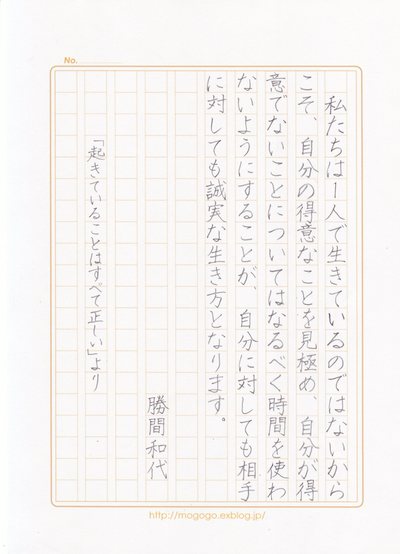 No.
私たちは1人で生きているのではないから
こそ、自分の得意なことを見極め、自分が得
意でないことについてはなるべく時間を使わ
ないようにすることが、自分に対しても相手
に対しても誠実な生き方となります。
勝間和代
「起きていることはすべて正しい」より
http://mogogo.exblog.jp/